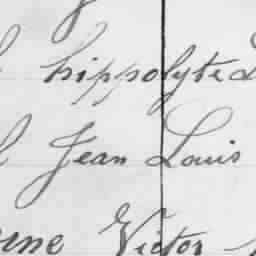 hippolyte
Jean Louis
Victor